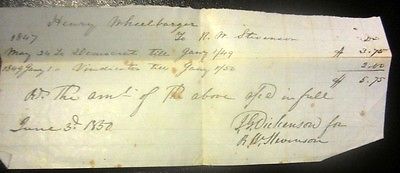 Henry Wheelbarger
1847 To R. W. Stevenson Dr
May 24 To Democrat till Jany 1/49 $ 3.75
1849 Jany 1 " Vindicator till Jany 1/50 2.00
$ 5.75
Rd. the amt of the above a/c in full
June 3d. 1850 Dickenson for
R. W. Stevenson